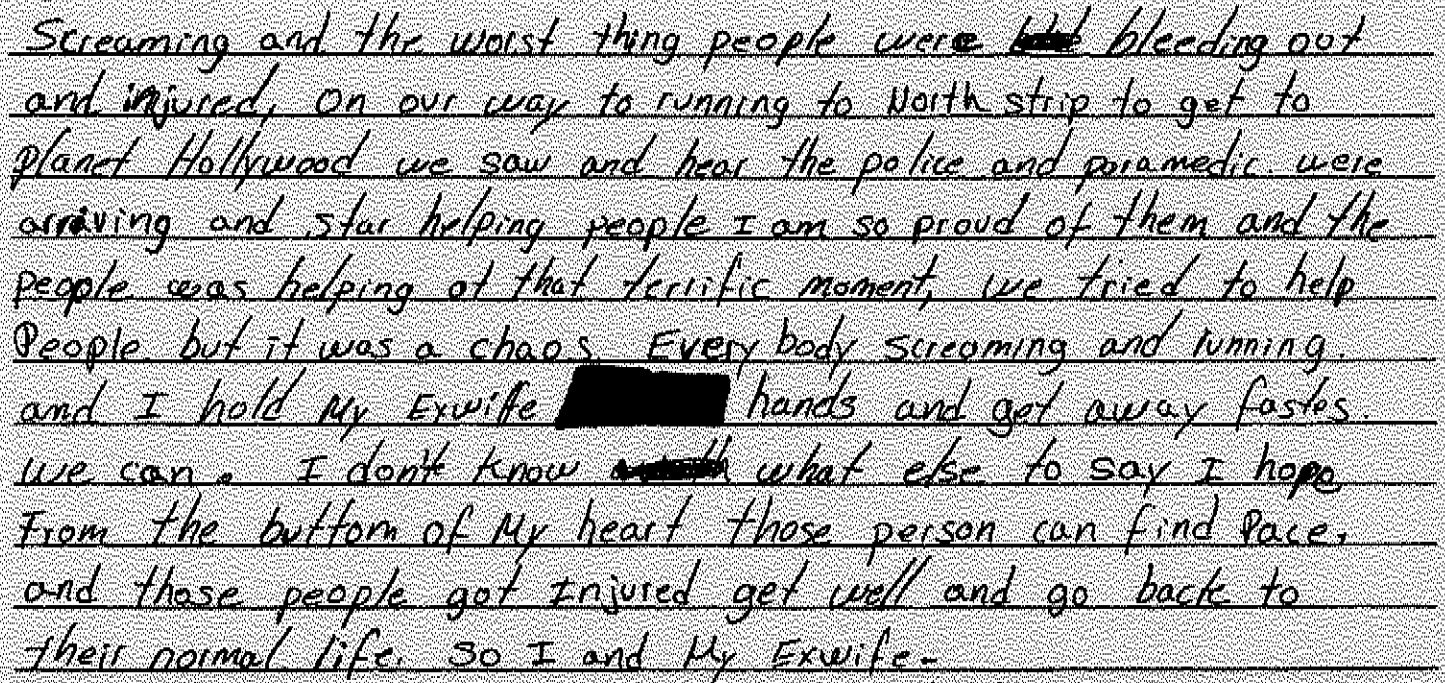 Screaming and the worst thing people were bleeding out
and injured, On our way to running to North strip to get to
Planet Hollywood we saw and hear the police and paramedic were
arriving and star helping people I am so proud of them and the
people was helping at that terrific moment, we tried to help
People but it was a chaos Every body screaming and running.
and I hold My Exwife hands and get away fastes.
we can. I don't know what else to say I hope
From the buttom of My heart those person can find Pace,
and those people got Injured get well and go back to
their normal life. So I and My Exwife-